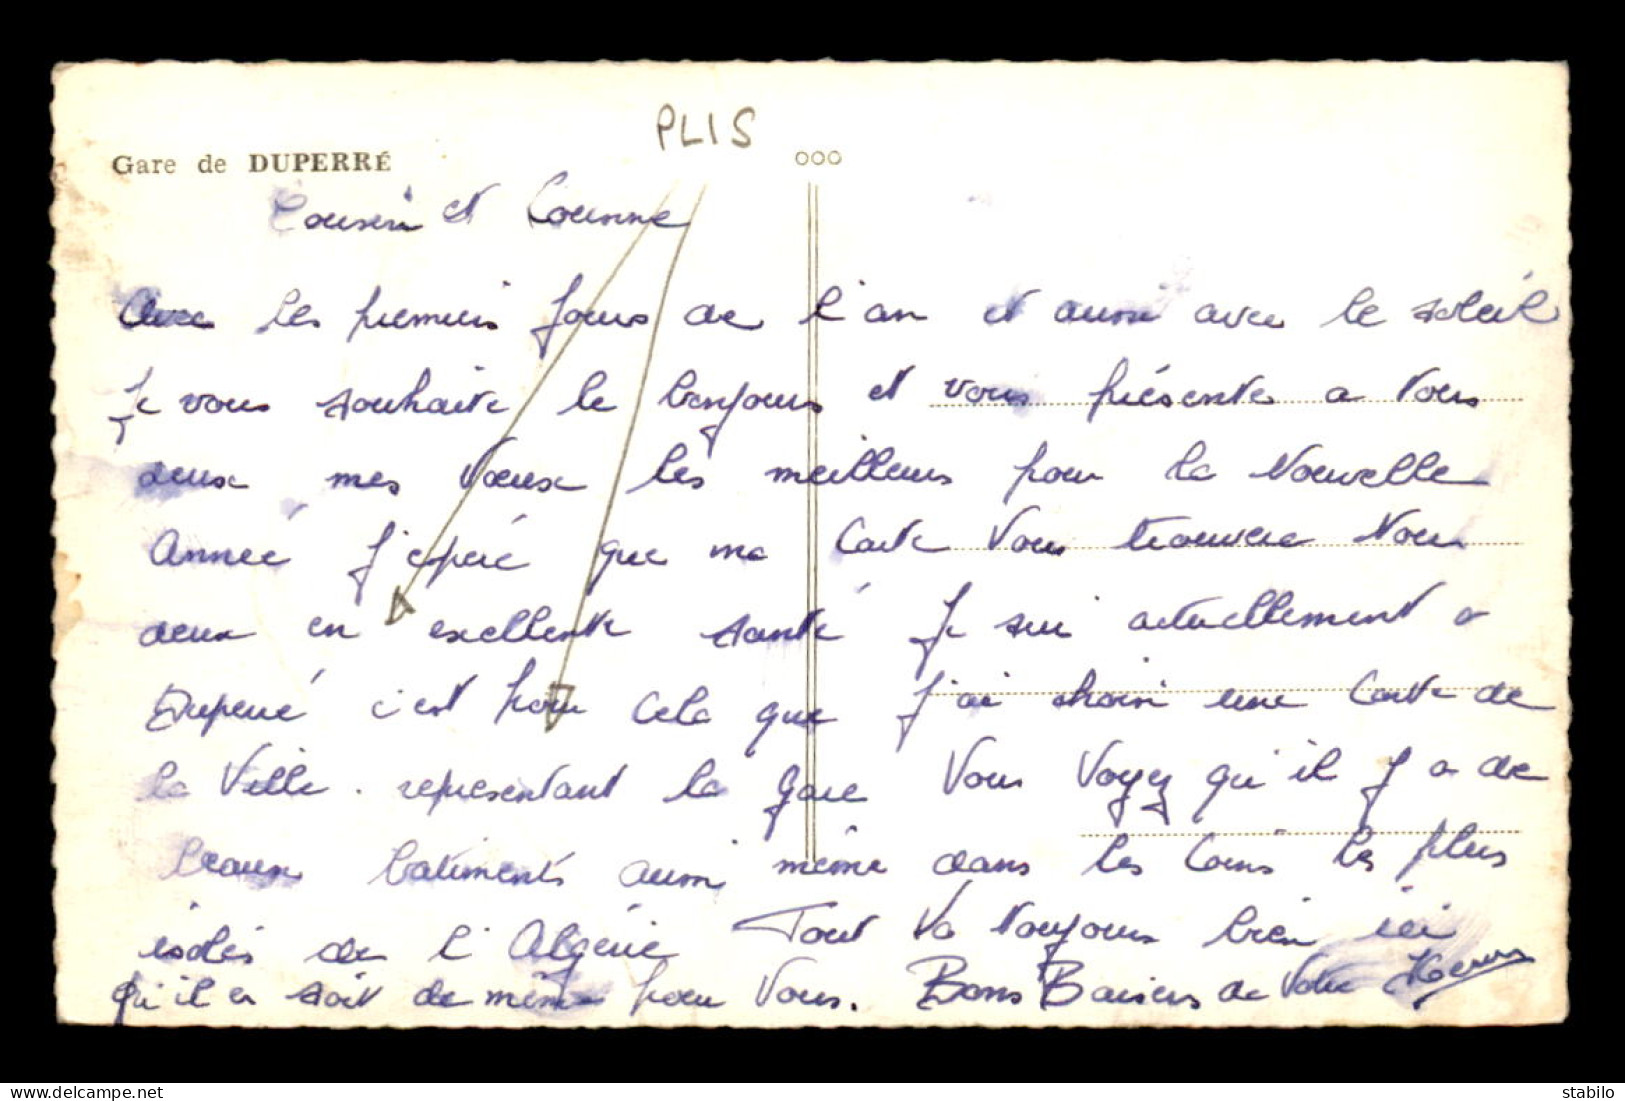 PLIS
Gare de DUPERRÉ
Cousin et Cousine
Avec les premiers jours de l'an et aussi avec le soleil
Je vous souhaite le bonjours et vous présente a tous
deux mes Vœux les meilleurs pour la Nouvelle
Année J'esperé que ma Carte Vous trouvera tous
deux en exellente santé Je sui actuellement a
Duperré c'est pour Cela que J'ai choisi une Carte de
la Ville . representant la gare Vous Voyez qu'il J a de
beaux batiments aussi même dans les Coins les plus
isolés de l'Algérie Tout Va toujours bien ici
qu'il en soit de même pour Vous. Bons Baisers de Votre
stabilo